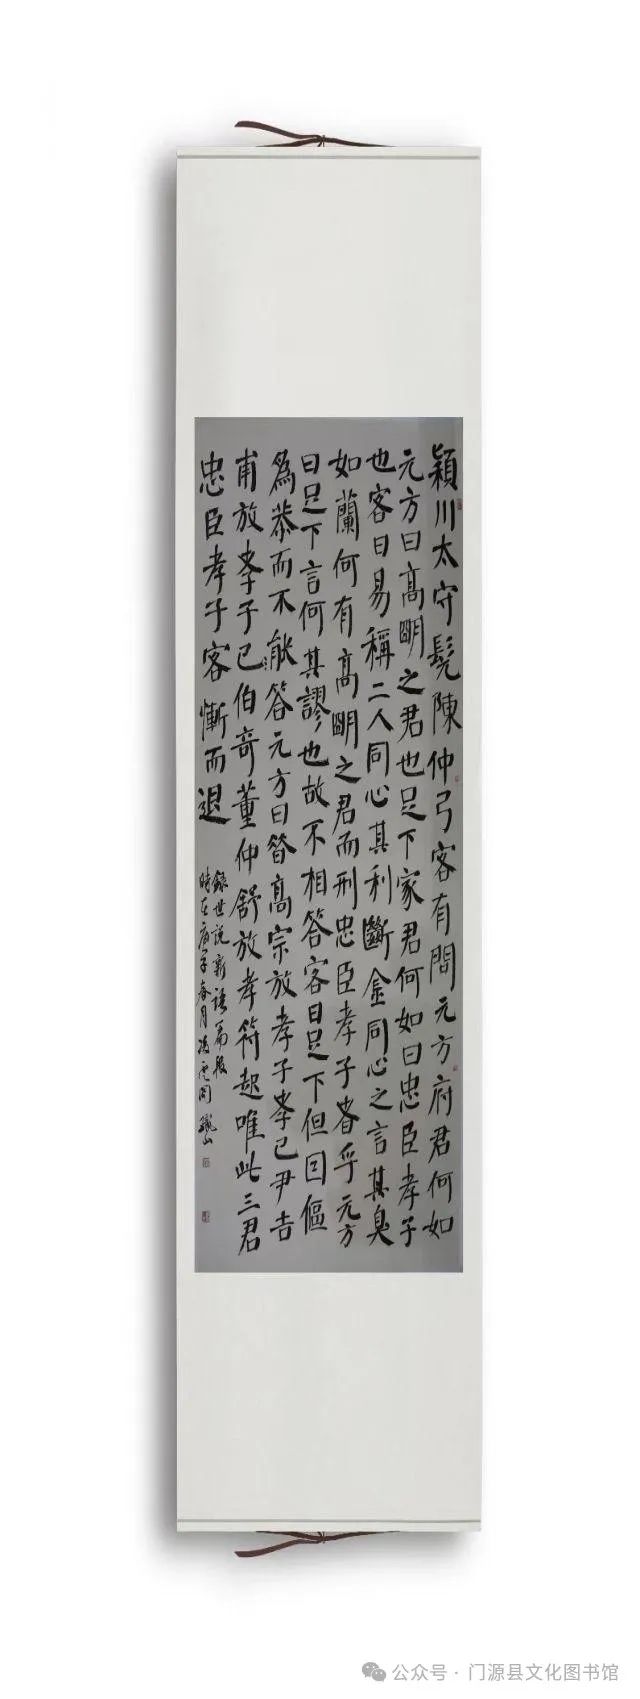 穎川太守髡陳仲弓客有問元方府君何如
元方曰高明之君也足下家君何如曰忠臣孝子
也客曰易稱二人同心其利斷金同心之言其臭
如蘭何有高明之君而刑忠臣孝子者乎元方
曰足下言何其謬也故不相答客曰足下但因傴
為恭而不能答元方曰昔高宗放孝子孝己尹吉
甫放孝子己伯奇董仲舒放孝符起唯此三君
忠臣孝子客慚而退
錄世說新語一篇
時在庚子春月馮
公众号·门源县文化图书馆